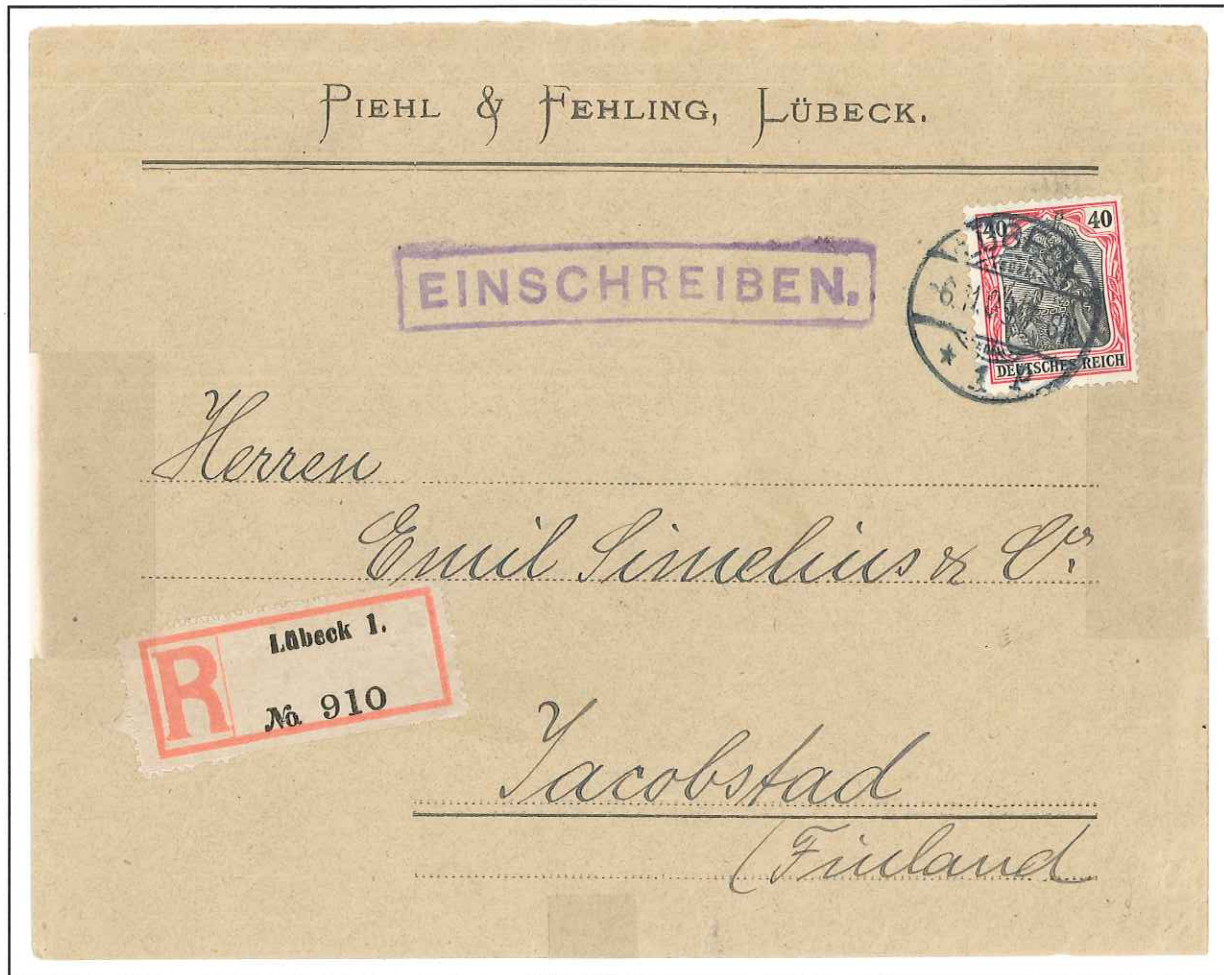 PIEHL & FEHLING, LÜBECK.
EINSCHREIBEN.
40 40
DEUTSCHES REICH
LÜBECK
6.11.04
* 1 P
Herren
Emil Simelius & Co.
R
Lübeck 1.
No. 910
Jacobstad
(Finland